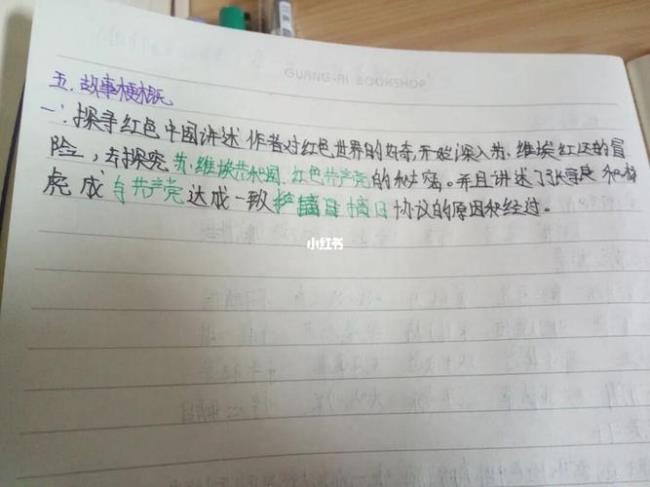 GUANG-AI BOOKSHOP
五.故事梗概
一:探寻红色中国讲述作者对红色世界的好奇,开始深入苏.维埃红区的冒
险,去探究苏.维埃共和国.红色共产党的秘密。并且讲述了张学良和杨
虎成与共产党达成一致抗日协议的原因和经过。
小红书